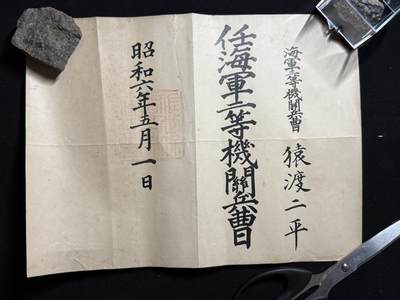 海軍三等機關兵曹 猿渡二平
任海軍二等機關兵曹
昭和六年五月一日